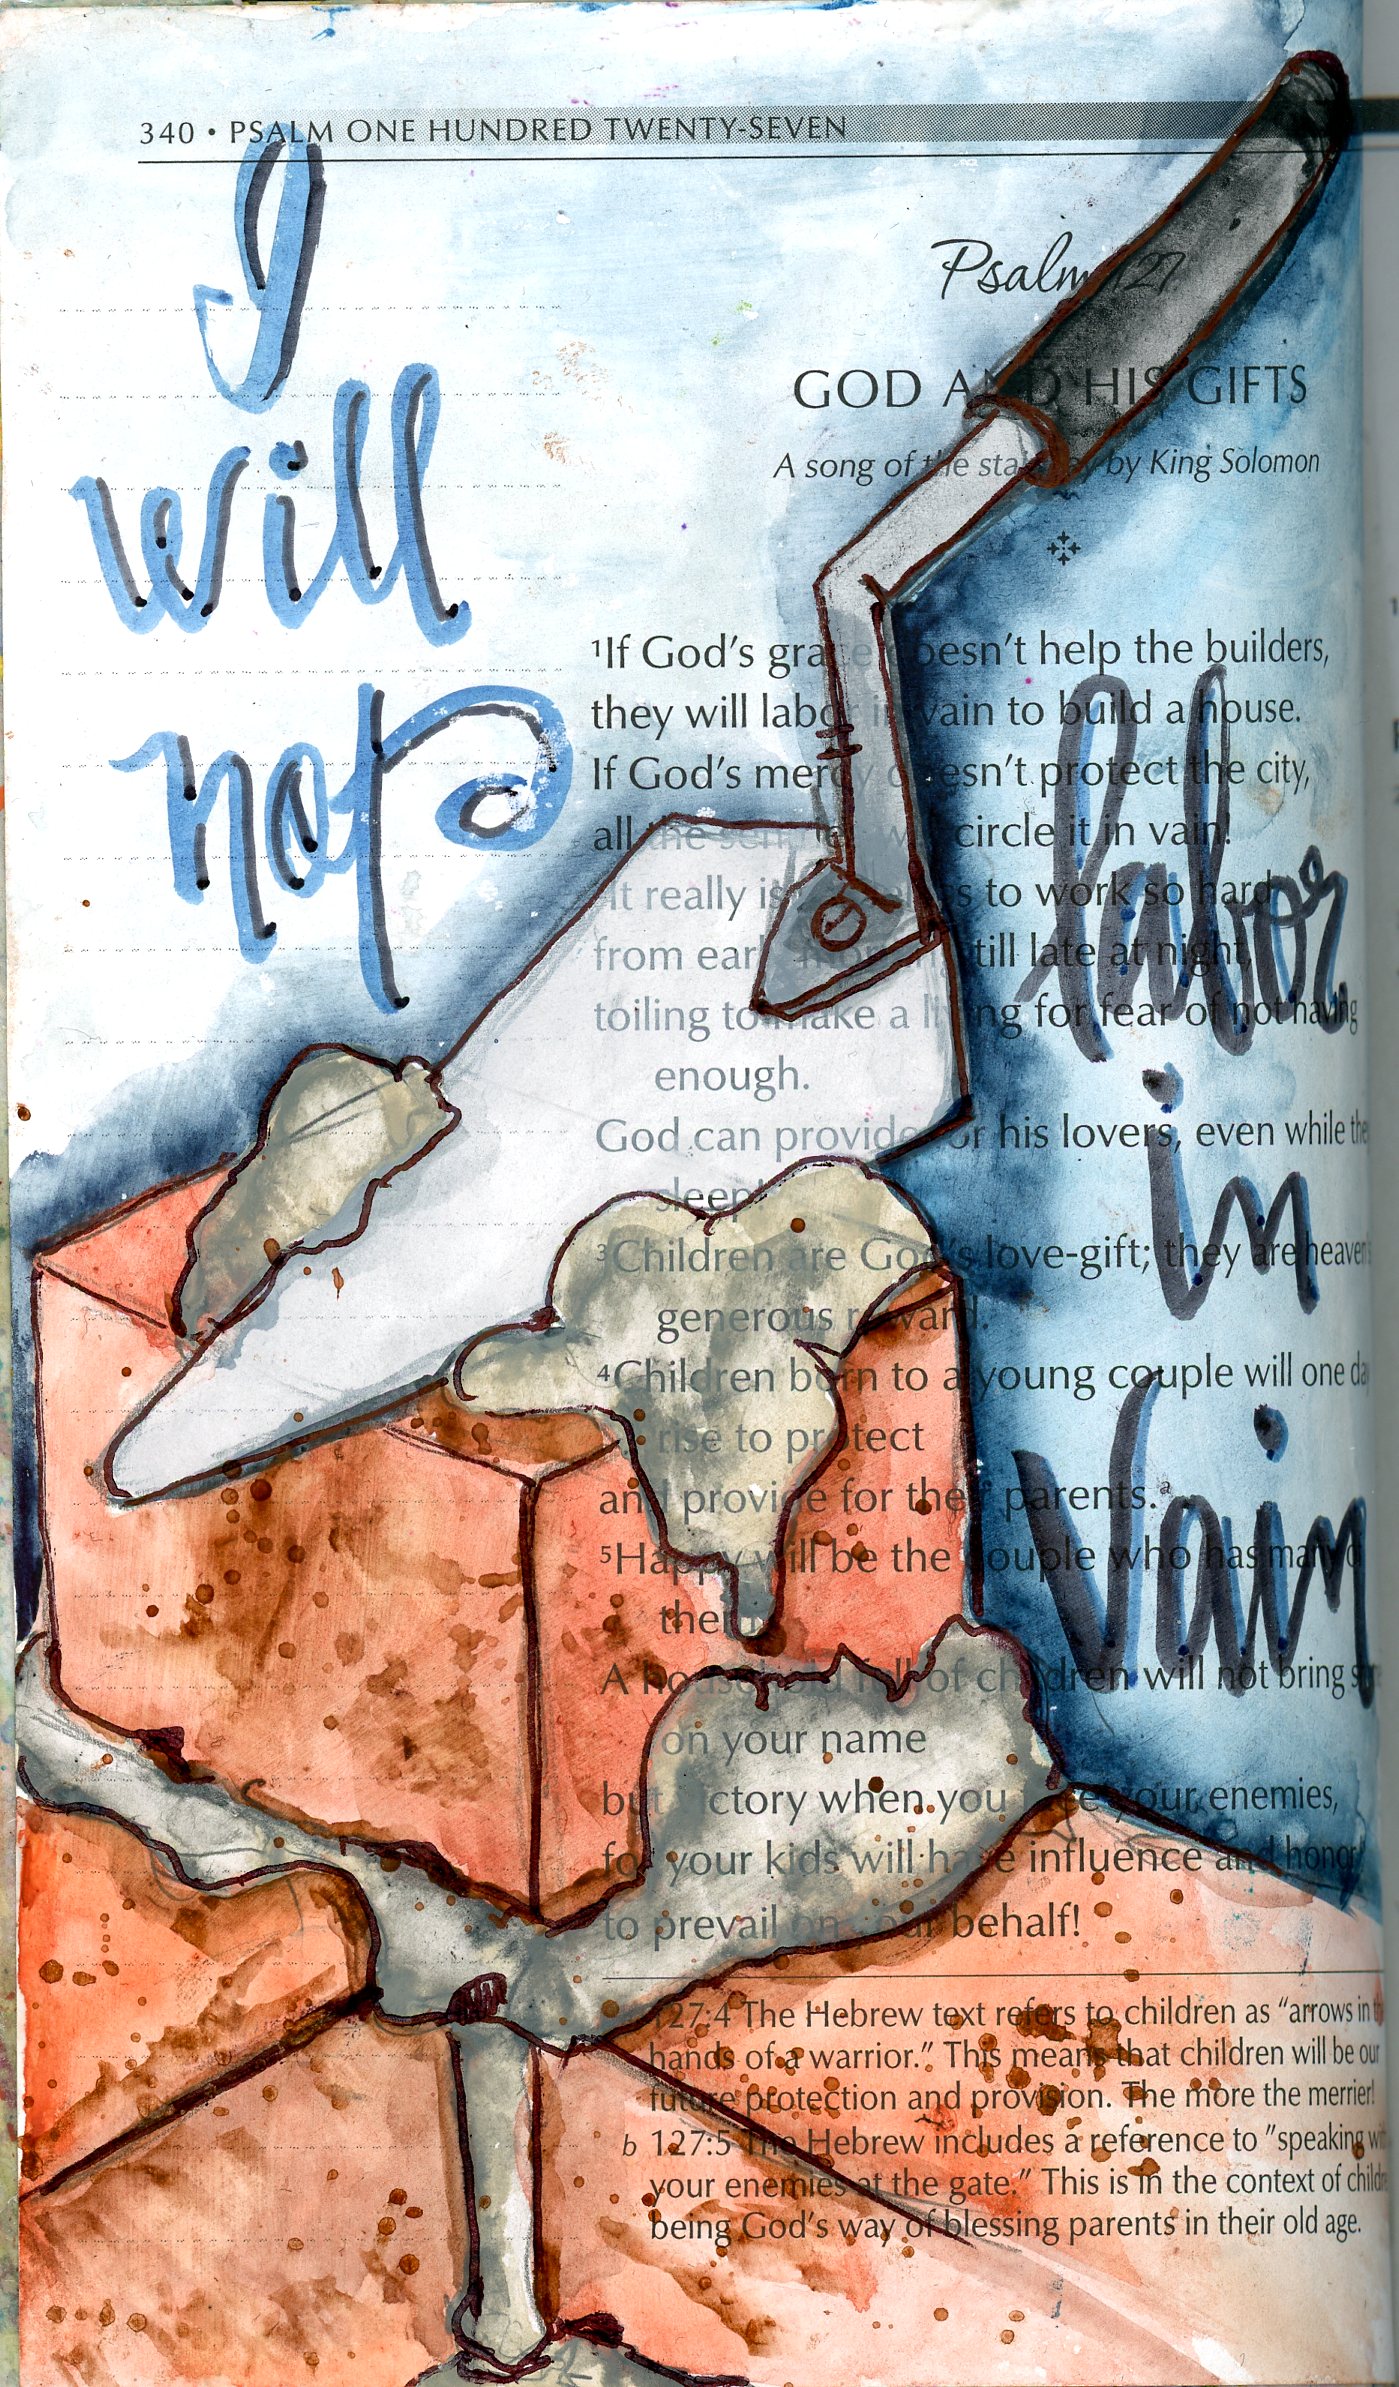 340 • PSALM ONE HUNDRED TWENTY-SEVEN
I
will
not
labor
in
Vain
Psalm 127
GOD AND HIS GIFTS
A song of the stairway by King Solomon
¹If God’s grace doesn’t help the builders,
they will labor in vain to build a house.
If God’s mercy doesn’t protect the city,
all the sentries will circle it in vain!
It really is senseless to work so hard
from early morning till late at night,
toiling to make a living for fear of not having
enough.
God can provide for his lovers, even while they
sleep!
³Children are God’s love-gift; they are heaven’s
generous reward.
⁴Children born to a young couple will one day
rise to protect
and provide for their parents.ᵃ
⁵Happy will be the couple who has many of
them!
A household full of children will not bring
on your name
but victory when you face your enemies,
for your kids will have influence and honor
to prevail on your behalf!
127:4 The Hebrew text refers to children as “arrows in the
hands of a warrior.” This means that children will be our
future protection and provision. The more the merrier!
b 127:5 The Hebrew includes a reference to “speaking with
your enemies at the gate.” This is in the context of children
being God’s way of blessing parents in their old age.